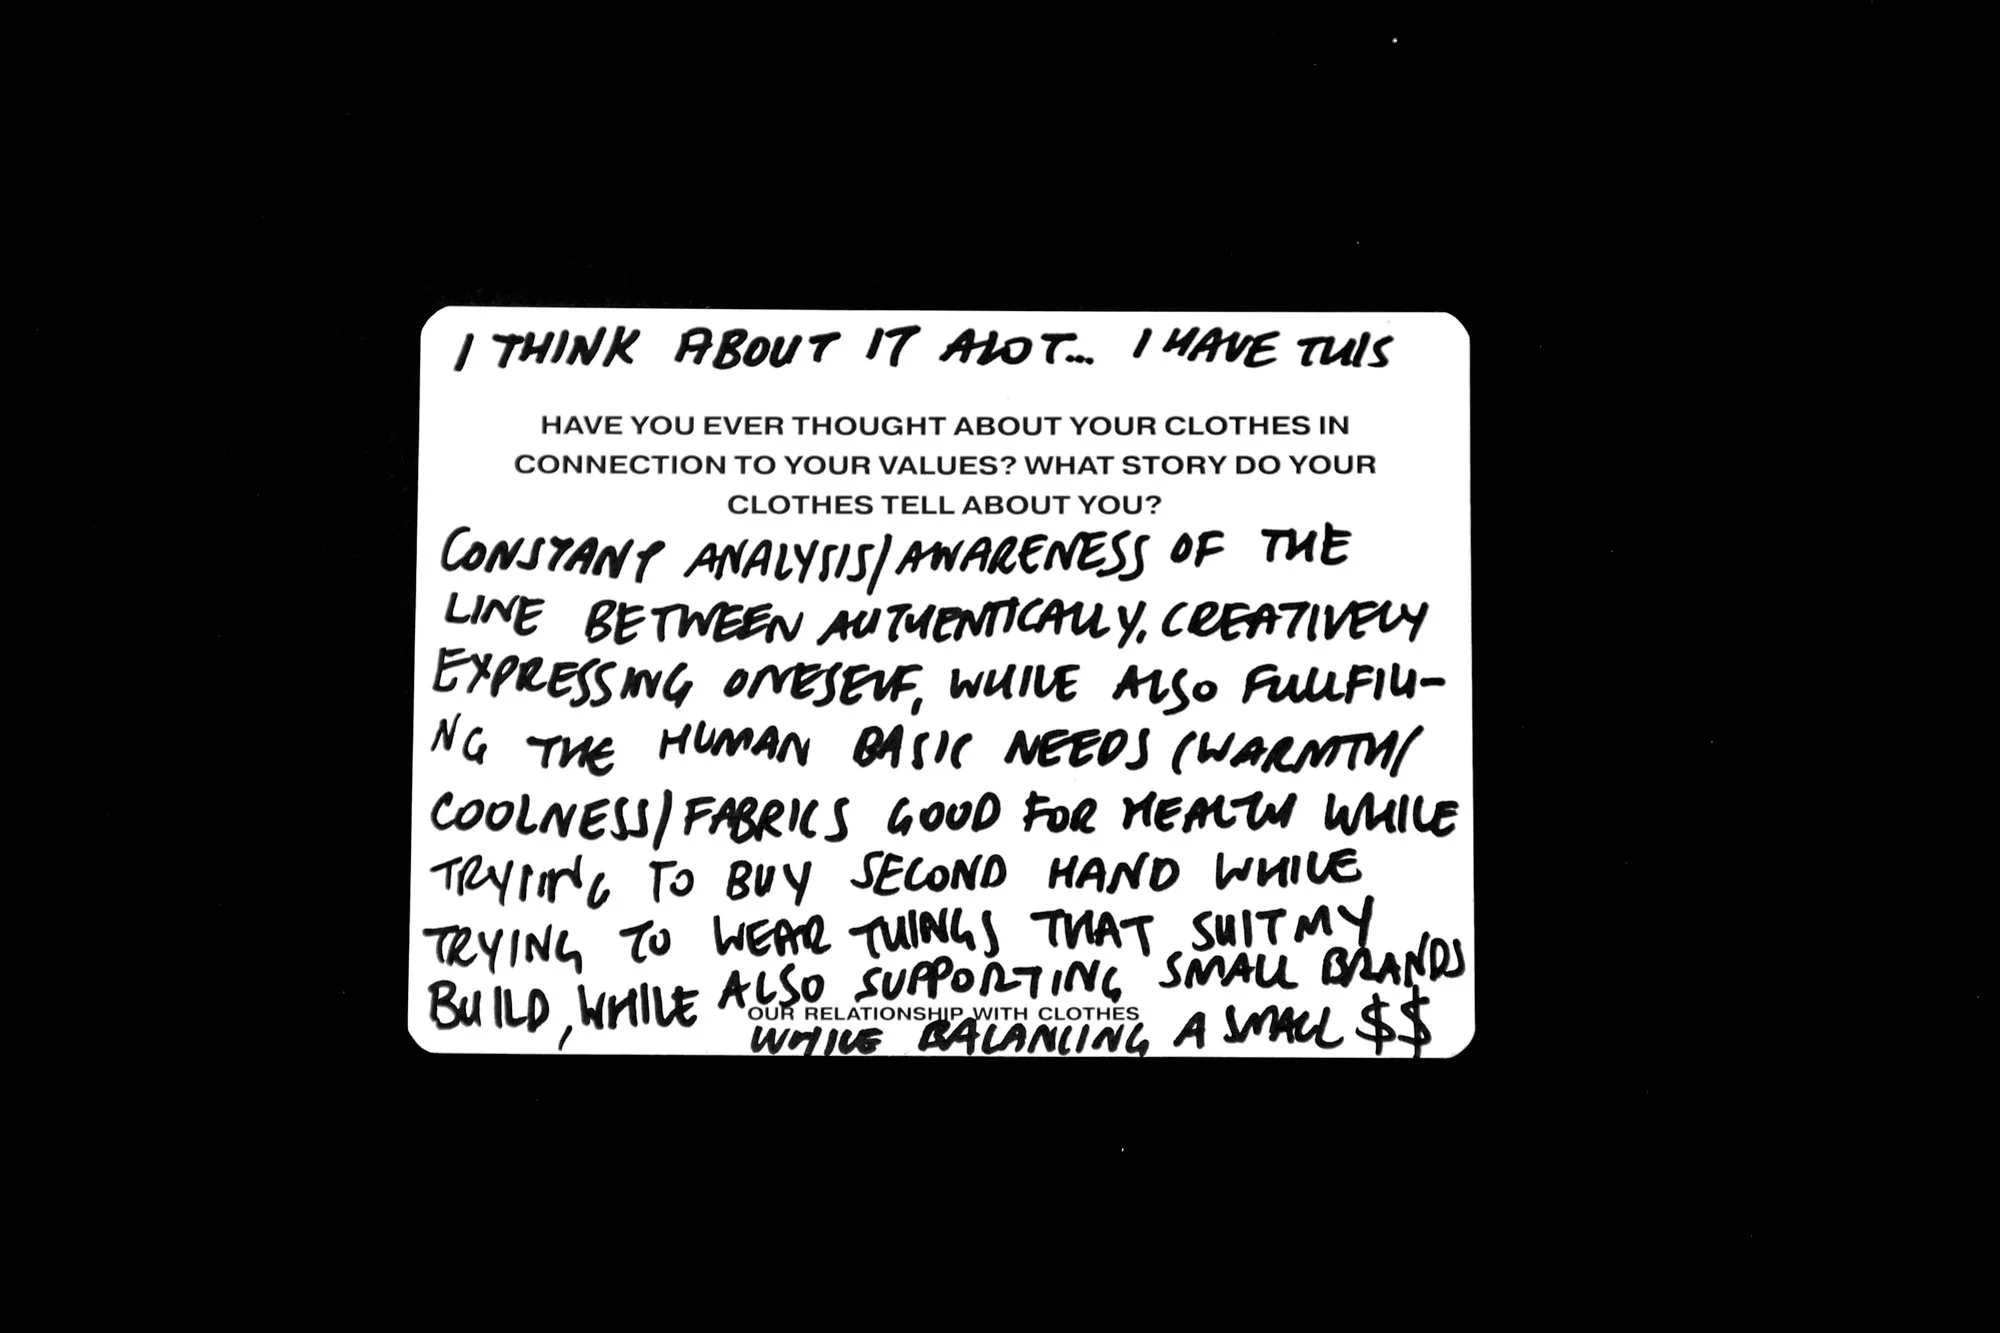 I THINK ABOUT IT ALOT... I HAVE THIS
HAVE YOU EVER THOUGHT ABOUT YOUR CLOTHES IN
CONNECTION TO YOUR VALUES? WHAT STORY DO YOUR
CLOTHES TELL ABOUT YOU?
CONSTANT ANALYSIS/AWARENESS OF THE
LINE BETWEEN AUTHENTICALLY, CREATIVELY
EXPRESSING ONESELF, WHILE ALSO FULLFILLI-
NG THE HUMAN BASIC NEEDS (WARMTH/
COOLNESS/FABRICS GOOD FOR HEALTH WHILE
TRYING TO BUY SECOND HAND WHILE
TRYING TO WEAR THINGS THAT SUIT MY
BUILD, WHILE ALSO SUPPORTING SMALL BRANDS
OUR RELATIONSHIP WITH CLOTHES
WHILE BALANCING A SMALL $$